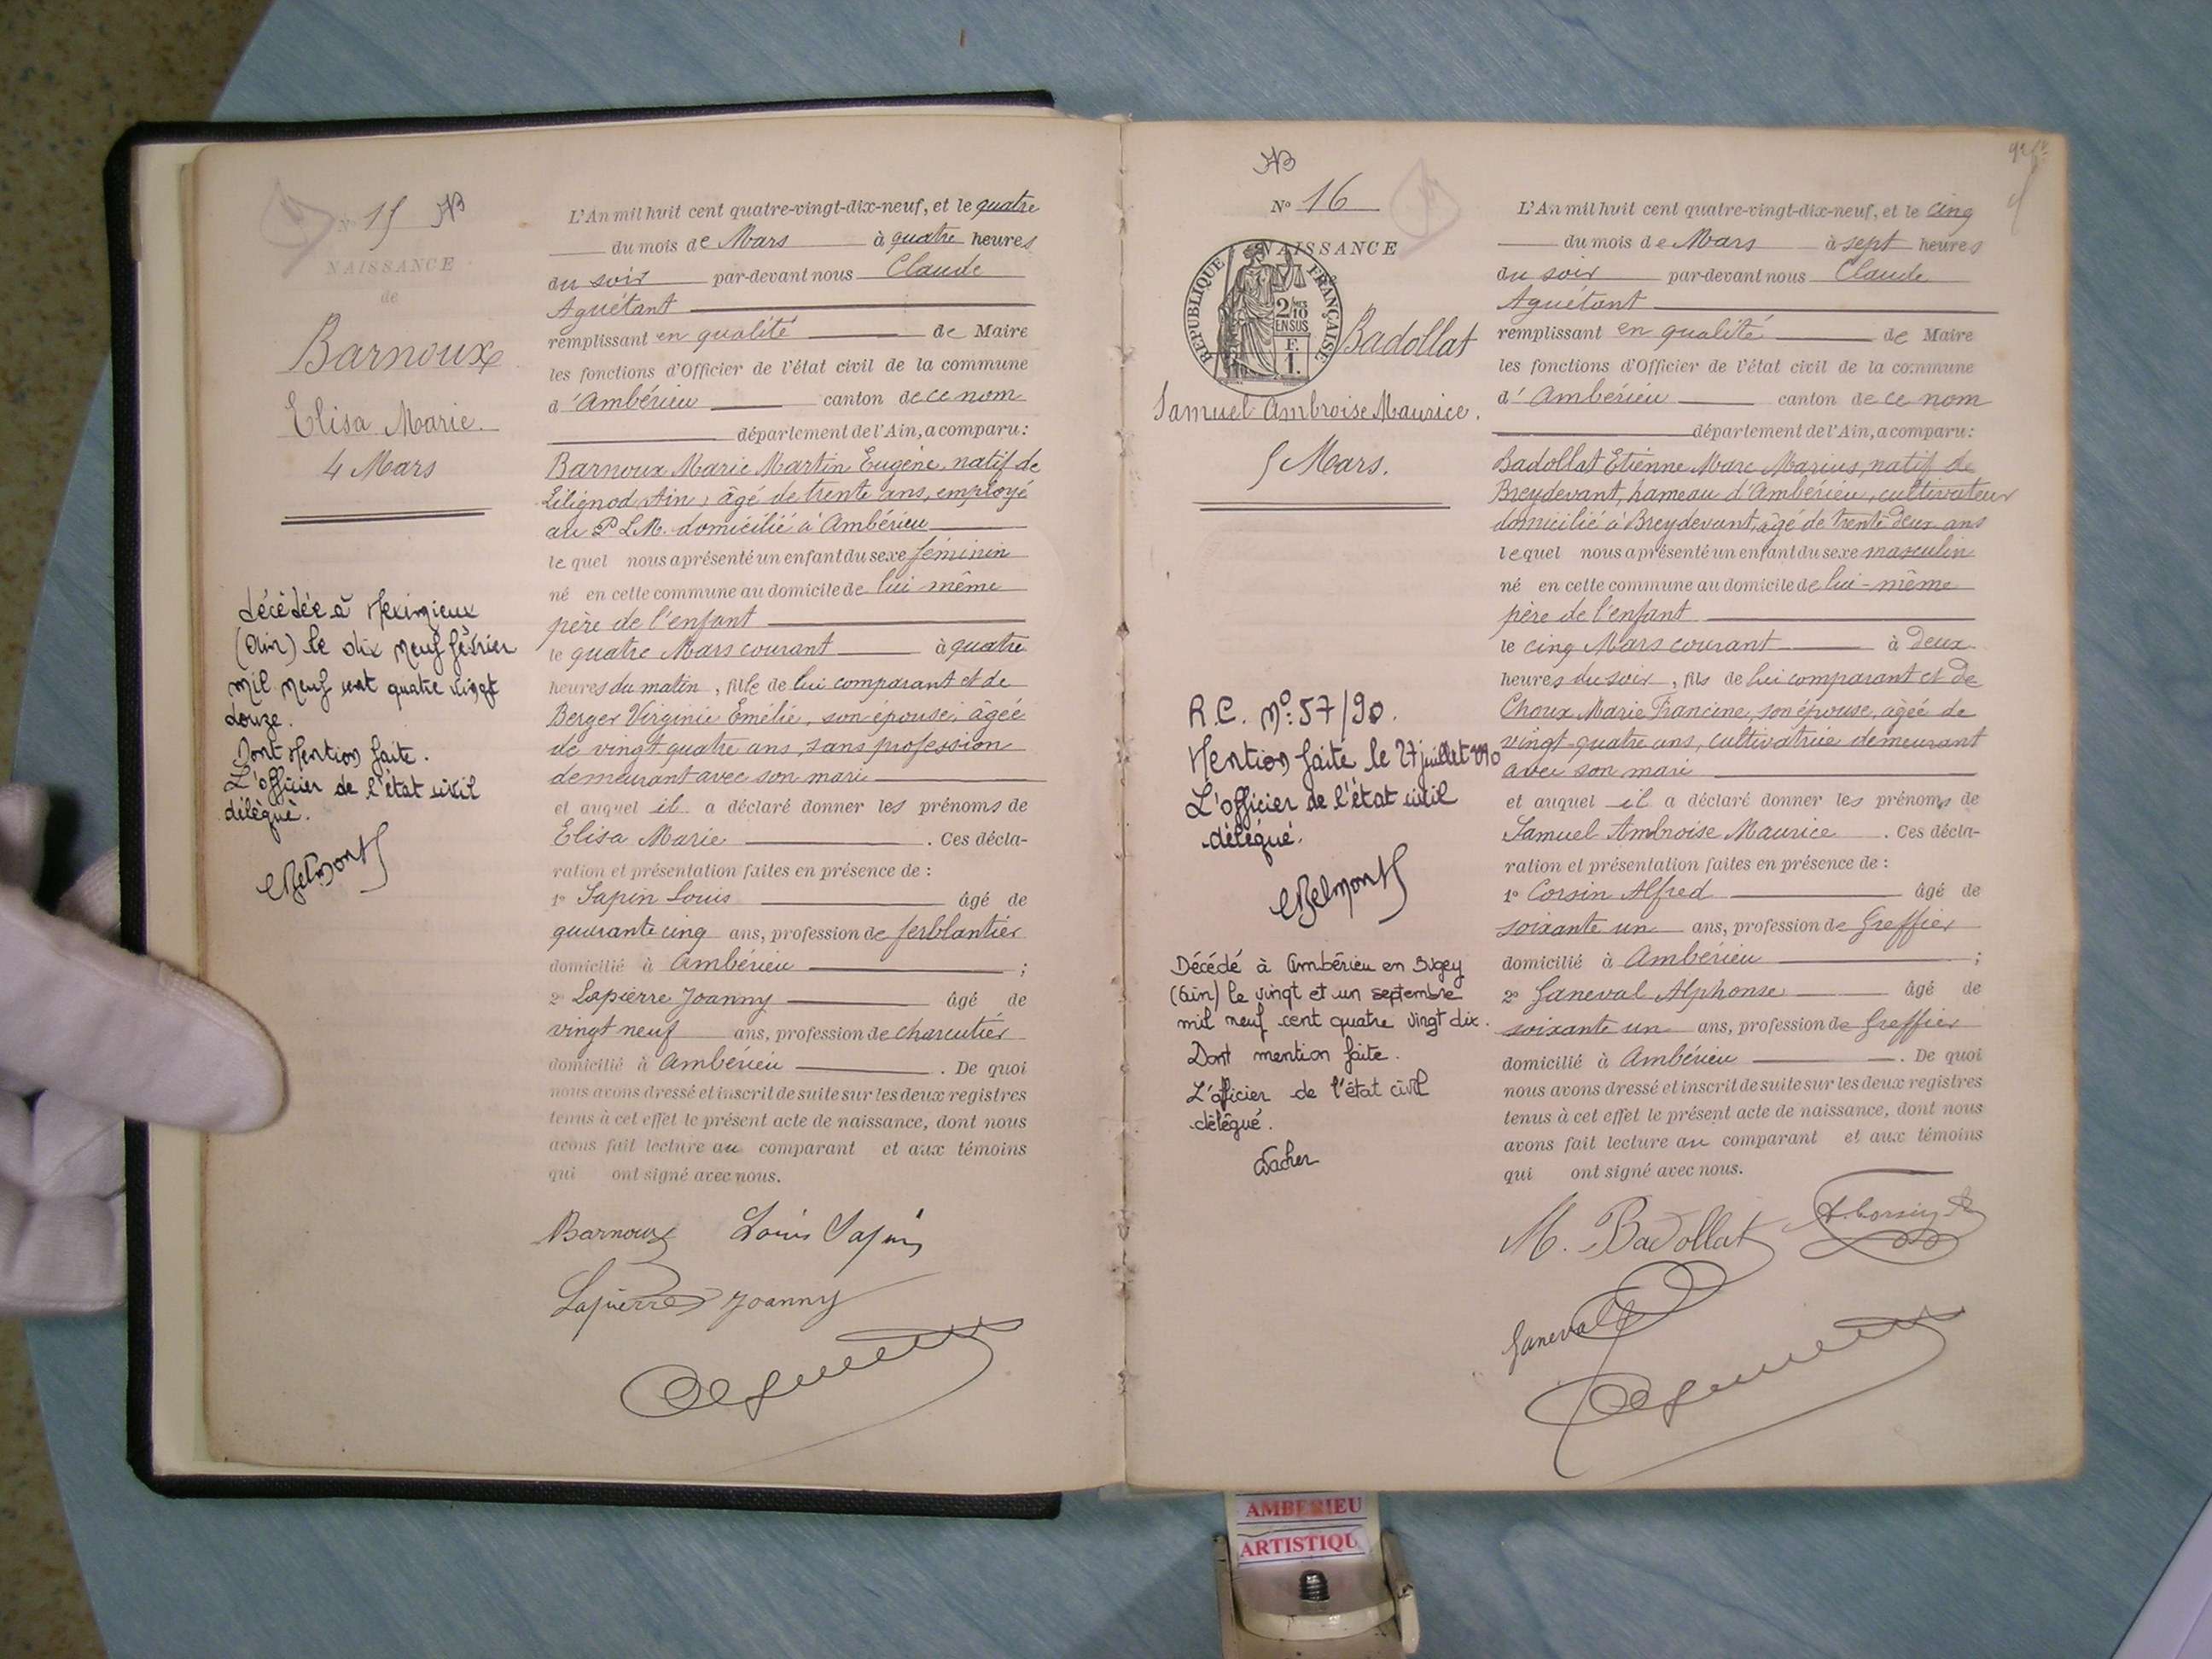 N° 15 AB
NAISSANCE
de
Barnoux
Elisa Marie.
4 Mars
décédée à Meximieux
(Ain) le dix neuf février
mil neuf cent quatre vingt
douze.
Dont Mention faite.
L'officier de l'état civil
délégué.
L'An mil huit cent quatre-vingt-dix-neuf, et le quatre
du mois de Mars à quatre heures
du soir par-devant nous Claude
Aguétant
remplissant en qualité de Maire
les fonctions d'Officier de l'état civil de la commune
d'Ambérieu canton de ce nom
département de l'Ain, a comparu:
Barnoux Marie Martin Eugène, natif de
Lilignod Ain, âgé de trente ans, employé
au P.L.M. domicilié à Ambérieu
le quel nous a présenté un enfant du sexe féminin
né en cette commune au domicile de lui même
père de l'enfant
le quatre Mars courant à quatre
heures du matin, fille de lui comparant et de
Berger Virginie Emélie, son épouse, âgée
de vingt quatre ans, sans profession
demeurant avec son mari
et auquel il a déclaré donner les prénoms de
Elisa Marie. Ces décla-
ration et présentation faites en présence de :
1° Sapin Louis âgé de
quarante cinq ans, profession de ferblantier
domicilié à Ambérieu ;
2° Lapierre Joanny âgé de
vingt neuf ans, profession de charcutier
domicilié à Ambérieu. De quoi
nous avons dressé et inscrit de suite sur les deux registres
tenus à cet effet le présent acte de naissance, dont nous
avons fait lecture au comparant et aux témoins
qui ont signé avec nous.
Barnoux Louis Sapin
Lapierre Joanny
AB
N° 16
NAISSANCE
RÉPUBLIQUE FRANÇAISE
2/10 MES
EN SUS
F.
1.
Badollat
Samuel Ambroise Maurice.
5 Mars.
R.C. N°: 57/90.
Mention faite le 27 juillet 1990
L'officier de l'état civil
délégué.
CBelmont
Décédé à Ambérieu en Bugey
(Ain) le vingt et un septembre
mil neuf cent quatre vingt dix.
Dont mention faite.
L'officier de l'état civil
délégué.
L'An mil huit cent quatre-vingt-dix-neuf, et le cinq
du mois de Mars à sept heures
du soir par-devant nous Claude
Aguétant
remplissant en qualité de Maire
les fonctions d'Officier de l'état civil de la commune
d'Ambérieu canton de ce nom
département de l'Ain, a comparu:
Badollat Etienne Marc Marius, natif de
Breydevant, hameau d'Ambérieu, cultivateur
domicilié à Breydevant, âgé de trente deux ans
lequel nous a présenté un enfant du sexe masculin
né en cette commune au domicile de lui-même
père de l'enfant
le cinq Mars courant à deux
heures du soir, fils de lui comparant et de
Choux Marie Francine, son épouse, agée de
vingt-quatre ans, cultivatrice demeurant
avec son mari
et auquel il a déclaré donner les prénoms de
Samuel Ambroise Maurice. Ces décla-
ration et présentation faites en présence de :
1° Corsin Alfred âgé de
soixante un ans, profession de Greffier
domicilié à Ambérieu ;
2° Janeval Alphonse âgé de
soixante un ans, profession de Greffier
domicilié à Ambérieu. De quoi
nous avons dressé et inscrit de suite sur les deux registres
tenus à cet effet le présent acte de naissance, dont nous
avons fait lecture au comparant et aux témoins
qui ont signé avec nous.
M. Badollat A. Corsin
Janeval
AMBERIEU
ARTISTIQU